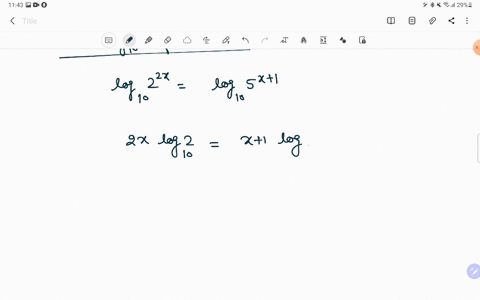 11:43 29%
Title
log₁₀ 2^2x = log₁₀ 5^x+1
2x log₁₀ 2 = x+1 log